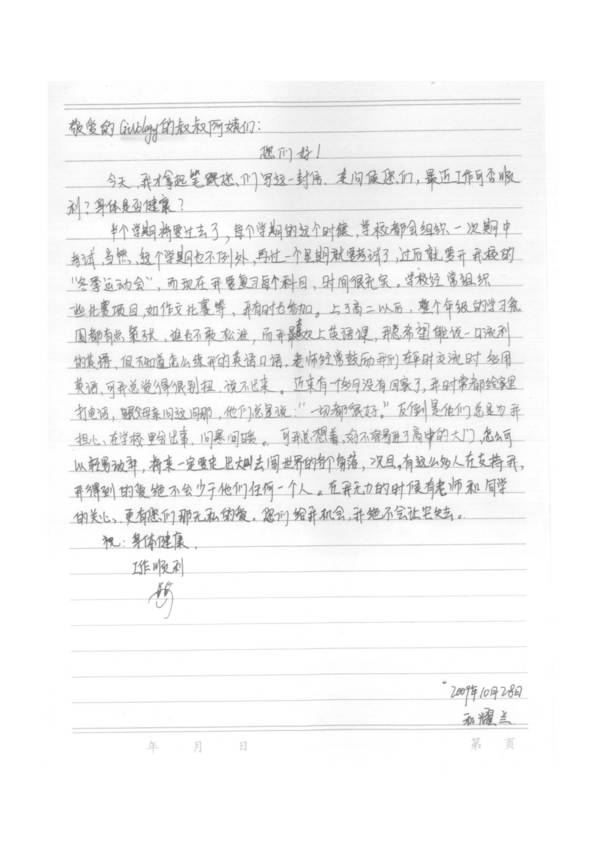 敬爱的Giublogy的叔叔阿姨们：
您们好！
今天，我才拿起笔跟您们写这一封信，来问候您们，最近工作可否顺
利？身体是否健康？
半个学期将要过去了，每个学期的这个时候，学校都会组织一次期中
考试，当然，这个学期也不例外，再过一个星期就要考试了，过后就要开我校的
“冬季运动会”，而现在我要复习每个科目，时间很充实。学校经常组织
些比赛项目，如作文比赛等，我有时也参加。上了高二以后，整个年级的学习氛
围都有点紧张，谁也不敢松迟，而我最喜欢上英语课，我希望能说一口流利
的英语，但不知道怎么练我的英语口语，老师经常鼓励我们在平时交流时多用
英语，可我总觉得很别扭，说不出来。近来有一个多月没有回家了，我时常都给家里
打电话，跟父母亲问这问那，他们总是说：“一切都很好。”反倒是他们总是为我
担心，在学校里会出事，问寒问暖。可我总想着，好不容易进了高中的大门，怎么可
以轻易放弃，将来一定要走出大门去闯世界的每个角落，况且，有这么多人在支持我，
我得到的爱绝不会少于他们任何一个人。在我无力的时候有老师和同学
的关心，更有您们那无私的爱，您们给我机会，我绝不会让它失去。
祝：身体健康
工作顺利
2009年10月28日
和耀兰
年 月 日 第 页